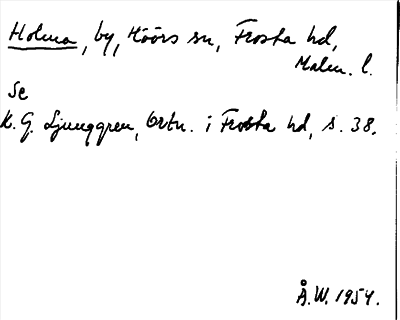 Holma, by, Höörs sn, Frosta hd,
Malm. l.
Se
K. G. Ljunggren, Ortn. i Frosta hd, s. 38.
Å.W. 1954.